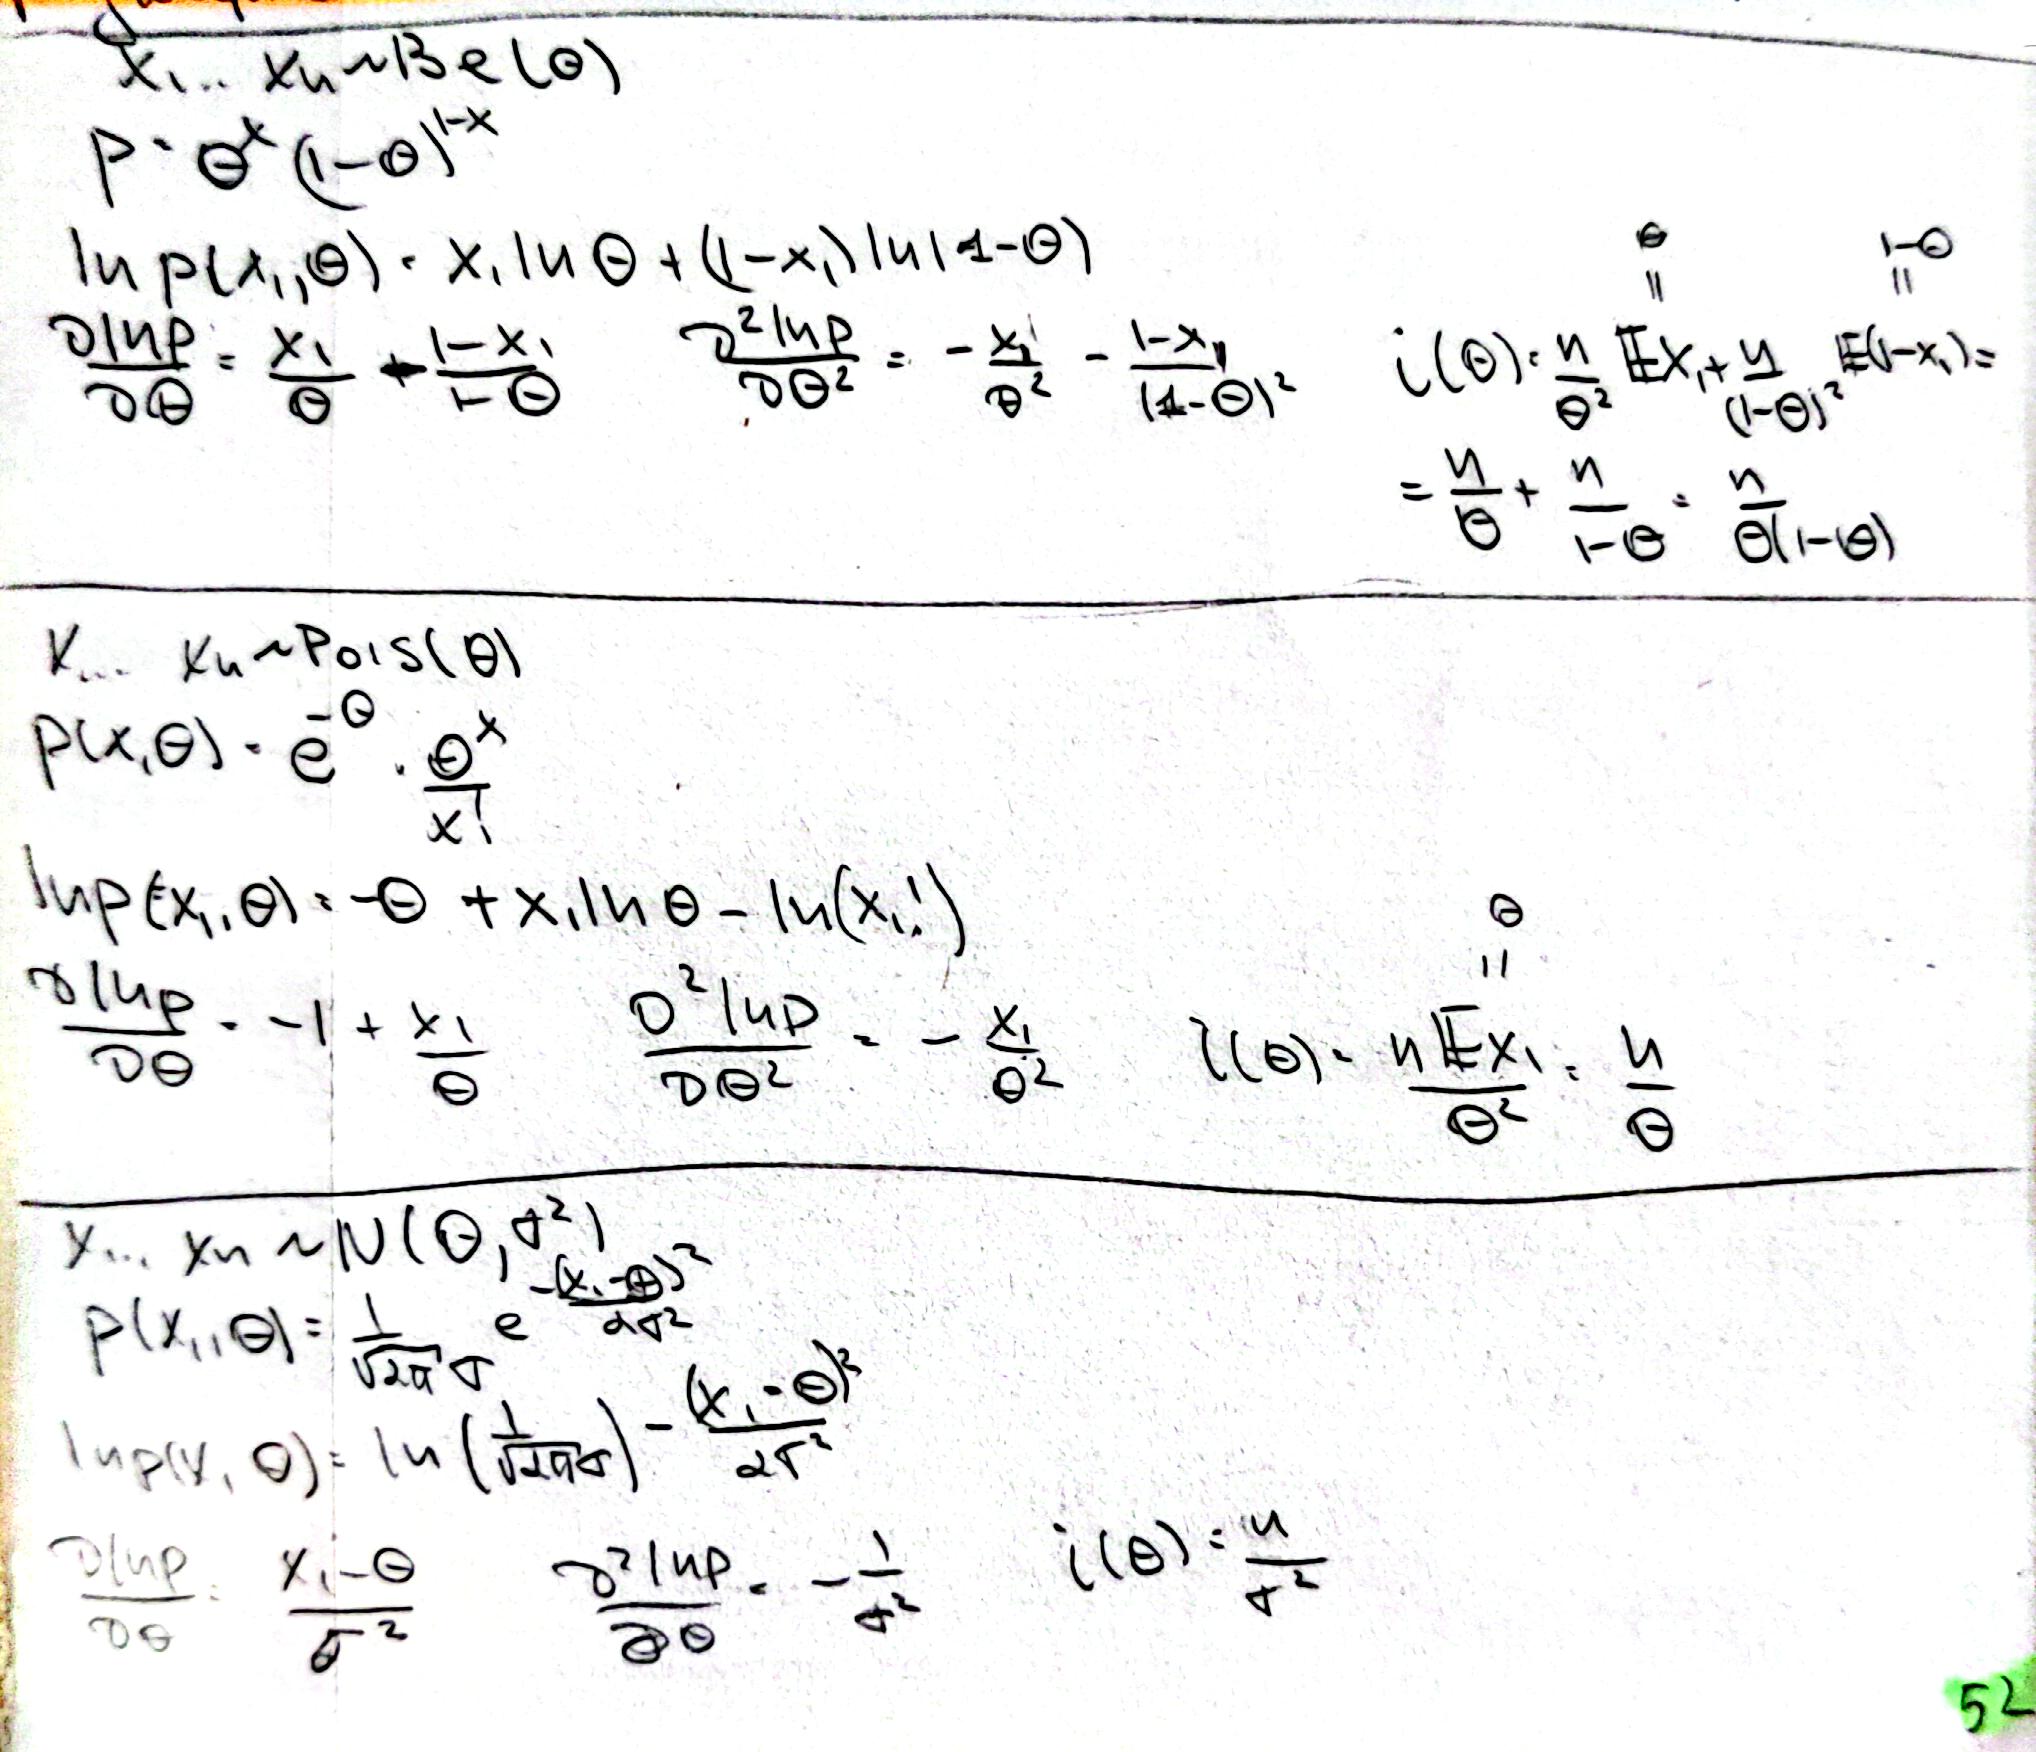 X₁... Xₙ ~ Be(θ)
p = θˣ(1-θ)¹⁻ˣ
ln p(x₁,θ) = x₁ ln θ + (1-x₁) ln(1-θ)
∂ln p/∂θ = x₁/θ + (1-x₁)/(1-θ)   ∂² ln p/∂θ² = - x₁/θ² - (1-x₁)/(1-θ)²   i(θ) = n/θ² 𝔼x₁ + n/(1-θ)² 𝔼(1-x₁) =
θ = 𝔼x₁   1-θ = 𝔼(1-x₁)
= n/θ + n/(1-θ) = n/(θ(1-θ))
X... Xₙ ~ Pois(θ)
p(x,θ) = e^(-θ) · θˣ/x!
ln p(x₁,θ) = -θ + x₁ ln θ - ln(x₁!)
θ = 𝔼x₁
∂ln p/∂θ = -1 + x₁/θ   ∂² ln p/∂θ² = - x₁/θ²   i(θ) = n𝔼x₁/θ² = n/θ
X... Xₙ ~ N(θ,σ²)
p(x₁,θ) = 1/(√2π σ) e^(-(x₁-θ)²/2σ²)
ln p(x,θ) = ln(1/(√2π σ)) - (x₁-θ)²/2σ²
∂ln p/∂θ = (x₁-θ)/σ²   ∂² ln p/∂θ = - 1/σ²   i(θ) = n/σ²
52